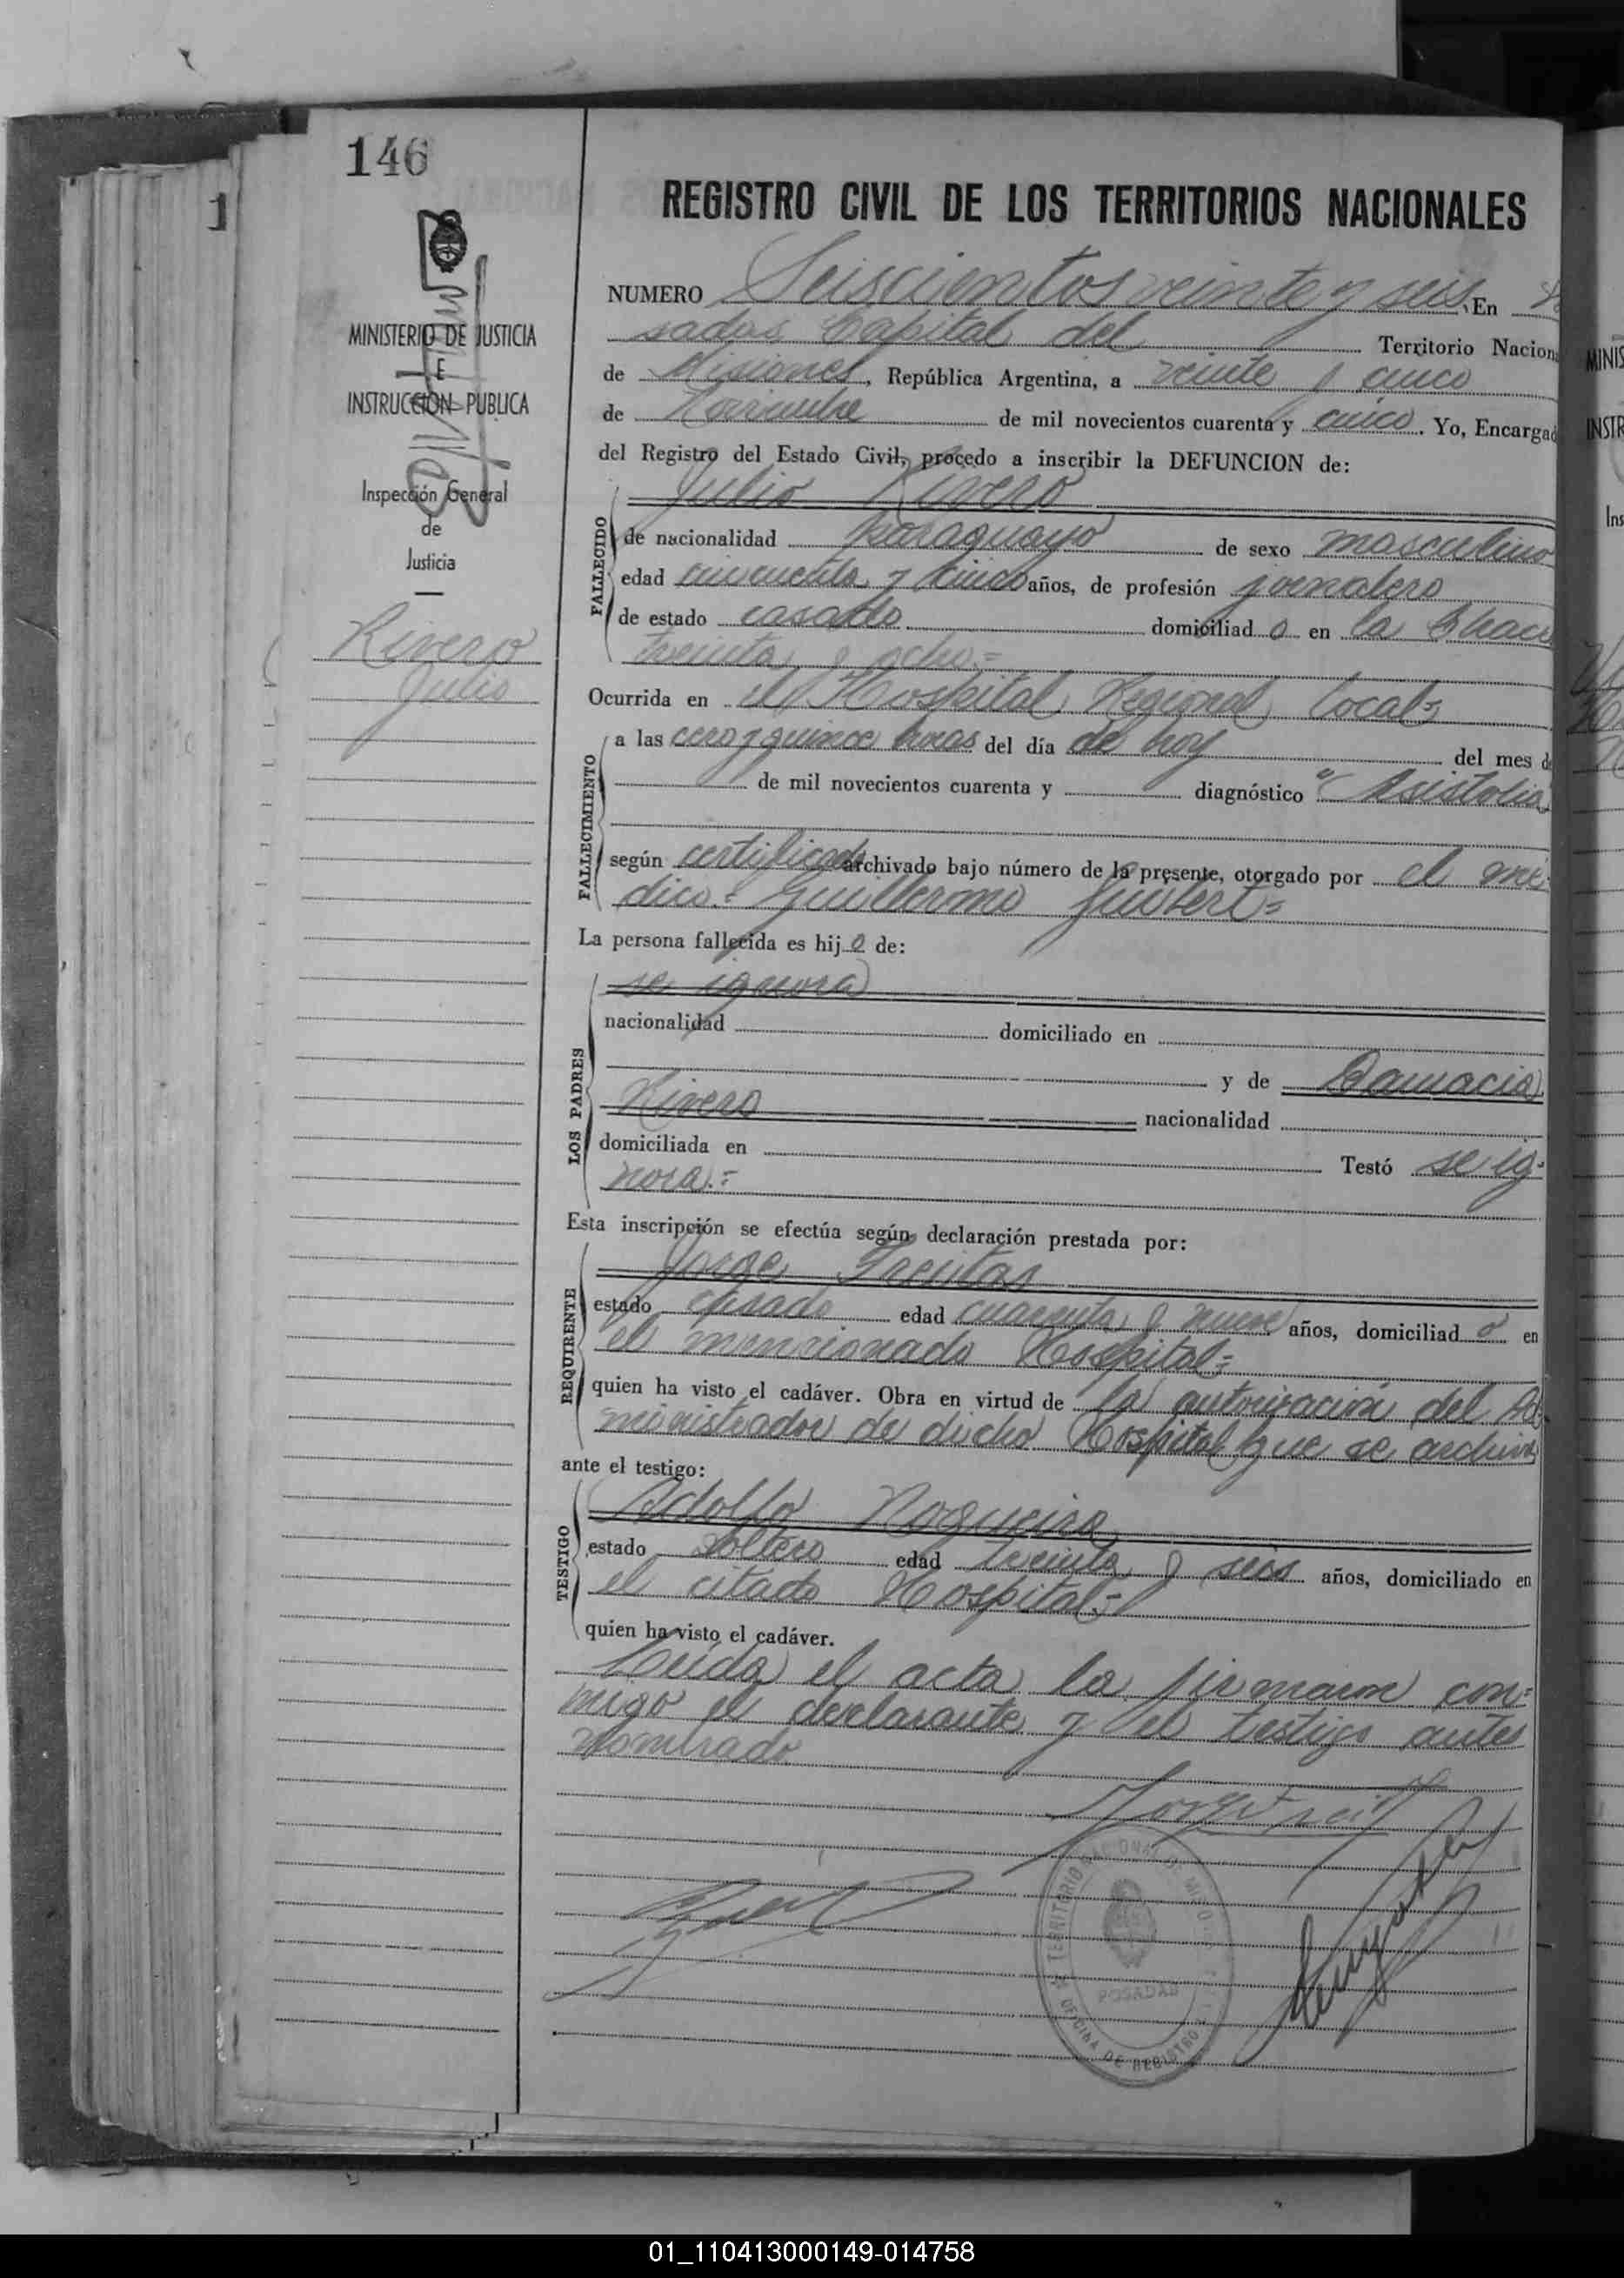 146
REGISTRO CIVIL DE LOS TERRITORIOS NACIONALES
MINISTERIO DE JUSTICIA
E
INSTRUCCIÓN PUBLICA
Inspección General
de
Justicia
Rivero
Julio
NUMERO Seiscientos veinte y seis. En
sadas Capital del Territorio Nacion
de Misiones, República Argentina, a veinte y cinco
de Noviembre de mil novecientos cuarenta y cinco. Yo, Encargad
del Registro del Estado Civil, procedo a inscribir la DEFUNCION de:
Julio Rivero
FALLECIDO
de nacionalidad paraguayo de sexo masculino
edad cincuenta y cinco años, de profesión jornalero
de estado casado domiciliado en la Chacra
treinta y ocho.=
Ocurrida en el Hospital Regional local=
FALLECIMIENTO
a las cero y quince horas del día de hoy del mes d
de mil novecientos cuarenta y diagnóstico "Asistolia
según certificado archivado bajo número de la presente, otorgado por el mé-
dico.= Guillermo
La persona fallecida es hijo de:
LOS PADRES
se ignora
nacionalidad domiciliado en
y de Damacia
Rivero nacionalidad
domiciliada en Testó se ig-
nora.=
Esta inscripción se efectúa según declaración prestada por:
REQUIRENTE
Jorge Freitas
estado casado edad cuarenta y nueve años, domiciliado en
el mencionado Hospital=
quien ha visto el cadáver. Obra en virtud de la autorización del Ad-
ministrador de dicho Hospital que se archiva
ante el testigo:
TESTIGO
Adolfo Nogueira
estado soltero edad treinta y seis años, domiciliado en
el citado Hospital=
quien ha visto el cadáver.
Leída el acta la firmaron con=
migo el declarante y el testigo antes
nombrado
POSADAS
OFICINA DE REGISTRO
01_110413000149-014758